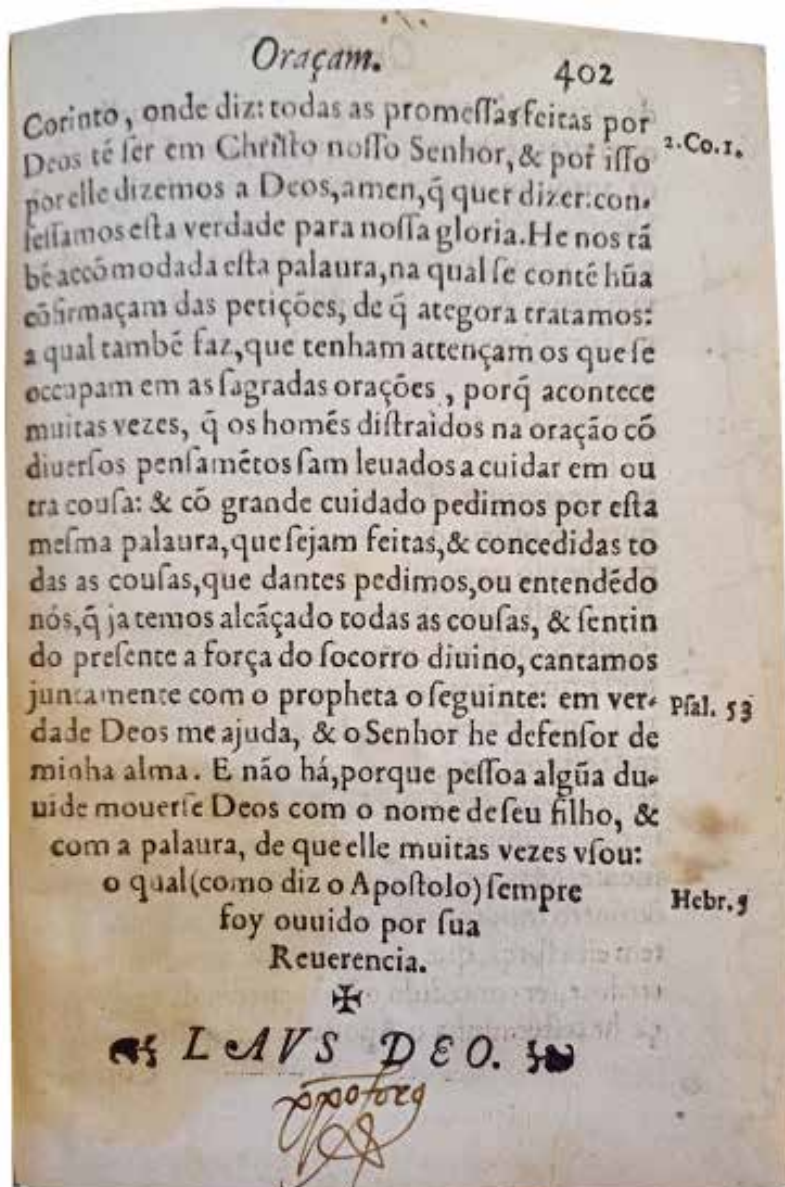 Oraçam. 402
Corinto, onde diz: todas as promeſſas feitas por
Deos tē ſer em Chriſto noſſo Senhor, & por iſſo 2.Co.1.
por elle dizemos a Deos, amen, q̃ quer dizer: con-
feſſamos eſta verdade para noſſa gloria. He nos tã
bē accõmodada eſta palaura, na qual ſe contē hũa
cõfirmaçam das petições, de q̃ ategora tratamos:
a qual tambē faz, que tenham attençam os que ſe
occupam em as ſagradas orações, porq̃ acontece
muitas vezes, q̃ os homēs diſtraidos na oração cõ
diuerſos penſamētos ſam leuados a cuidar em ou
tra couſa: & cõ grande cuidado pedimos por eſta
meſma palaura, que ſejam feitas, & concedidas to
das as couſas, que dantes pedimos, ou entendēdo
nós, q̃ ja temos alcãçado todas as couſas, & ſentin
do preſente a força do ſocorro diuino, cantamos
juntamente com o propheta o ſeguinte: em ver- Pſal. 53
dade Deos me ajuda, & o Senhor he defenſor de
minha alma. E não há, porque peſſoa algũa du-
uide mouerſe Deos com o nome de ſeu filho, &
com a palaura, de que elle muitas vezes vſou:
o qual (como diz o Apoſtolo) ſempre Hebr. 5
foy ouuido por ſua
Reuerencia.
✠
LAVS DEO.